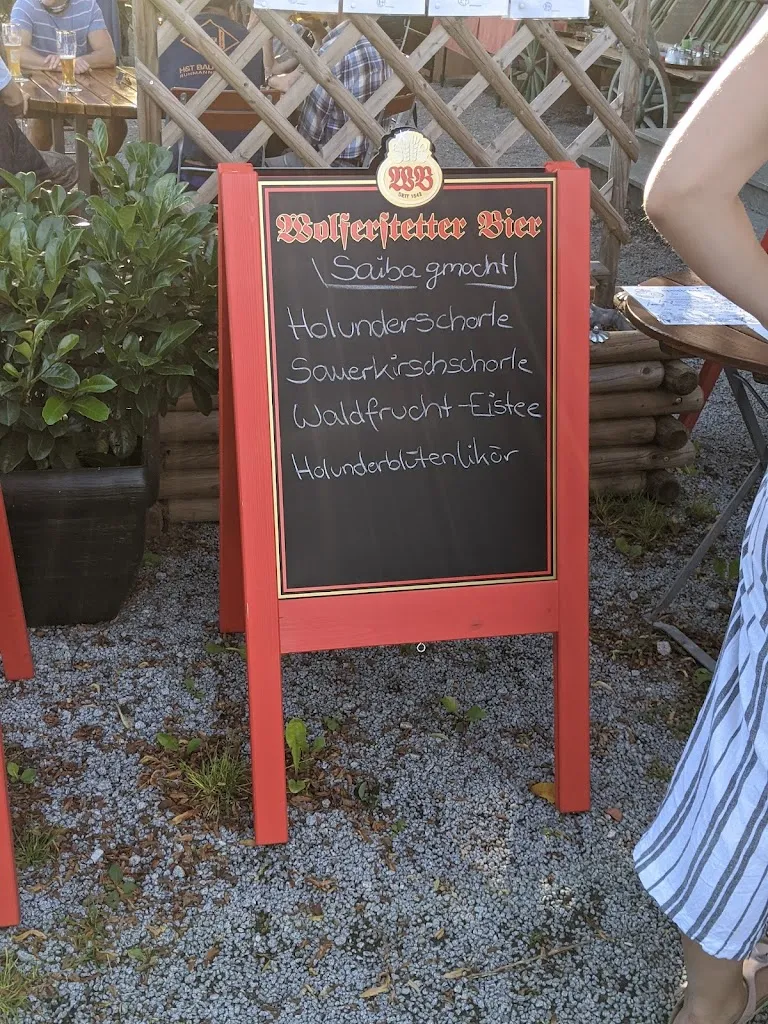 HST BAU
WB
SEIT 1642
Wolferstetter Bier
Saiba gmocht
Holunderschorle
Sauerkirschschorle
Waldfrucht-Eistee
Holunderblütenlikör